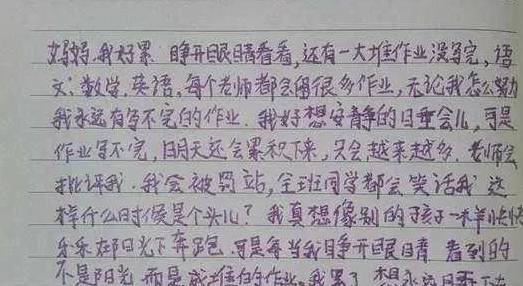 妈妈,我好累 睁开眼睛看看,还有一大堆作业没写完,语
文,数学,英语,每个老师都会留很多作业,无论我怎么努力
我永远有写不完的作业.我好想安静的睡会儿,可是
作业写不完,明天还会累积下来,只会越来越多.老师会
批评我.我会被罚站,全班同学都会笑话我 这
样什么时候是个头儿?我真想像别的孩子一样快快
乐乐在阳光下奔跑.可是每当我睁开眼睛 看到的
不是阳光 而是成堆的作业.我累了 想永远